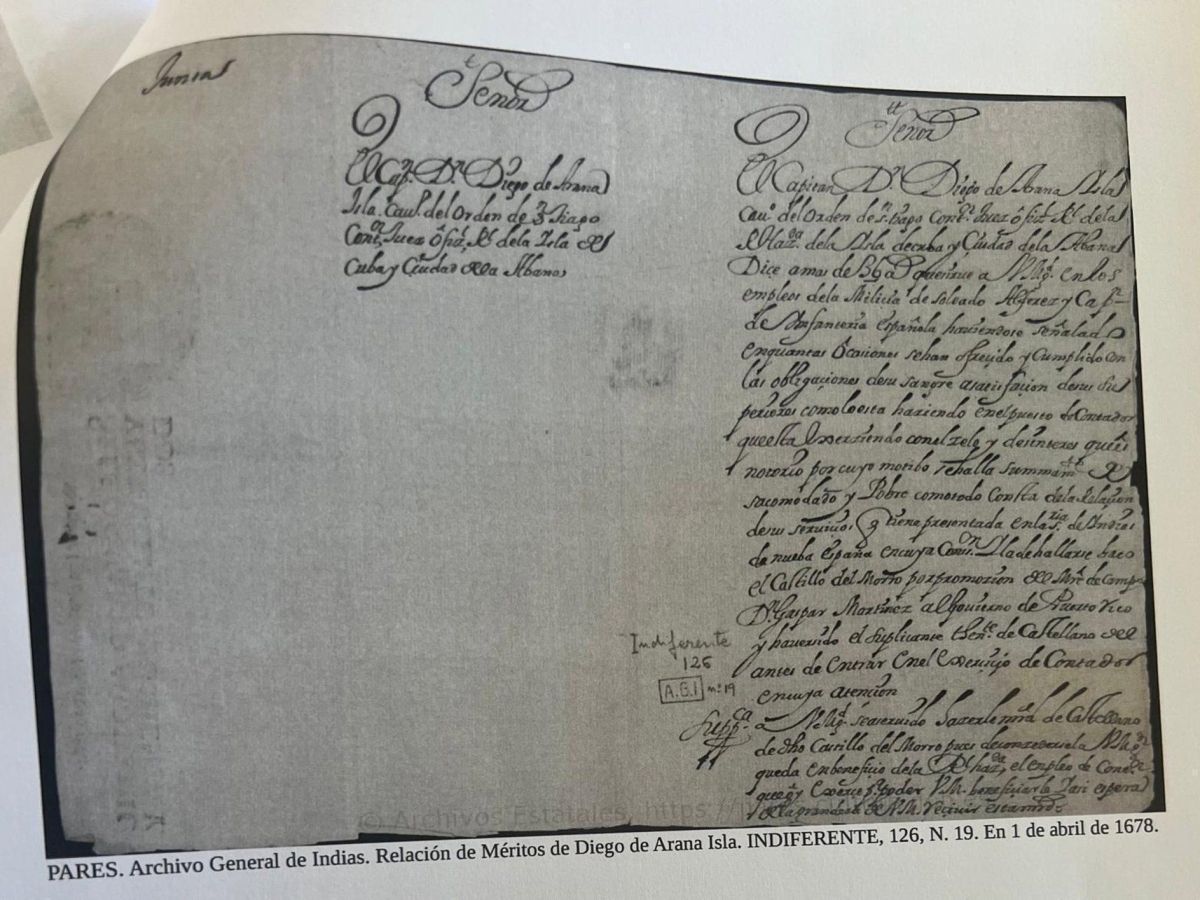 Juntas
Señor
El Cap.n D.n Diego de Arana
Isla. Cau.o del Orden de S.n Tiago
Cont.or Juez ofiz.l R.l de la Isla de
Cuba y Ciudad de la Abana
Señor
El Capitan D.n Diego de Arana Isla
Cau.o del Orden de S.n tiago Cont.or Juez ofiz.l R.l de la
R.l Haz.da de la Isla de cuba y Ciudad de la Abana
Dice a mas de que sirue a V. Mg.d en los
empleos de la Milicia de soldado Alferez y Cap.n
de Infanteria española hauiendose señalado
en quantas Ocaciones se han ofrecido y Cumplido con
las obligaciones de su sangre a satisfacion de sus su
periores como lo esta haziendo en el puesto de Contador
que esta Exerziendo con el zelo y desinteres que es
notorio por cuyo motibo se halla summam.te de
sacomodado y Pobre como todo Consta de la Relacion
de sus seruicios q tiene presentada en la s.ria de Indias
de nueba españa en cuya Con
el Castillo del Morro por promozion del M.re de Camp.o
D.n Gaspar Martinez al gouierno de Puerto rico
y hauer sido el suplicante then.te de Castellano del
antes de entrar en el Exersisio de Contador
en cuya atencion
Supp.ca a V. Mg.d sea seruido hazerle m.rd de Castellano
de dho Castillo del Morro pues de conzedersela V. Mg.d
queda en beneficio de la R.l haz.da el empleo de Cont.or
que oy exerce p.r poder V.M. beneficiarlo Y asi espera
de la grandeza de V.M. reciuir esta m.rd
Indiferente
126
A.G.I nº 19
© Archivos Estatales, https://
PARES. Archivo General de Indias. Relación de Méritos de Diego de Arana Isla. INDIFERENTE, 126, N. 19. En 1 de abril de 1678.